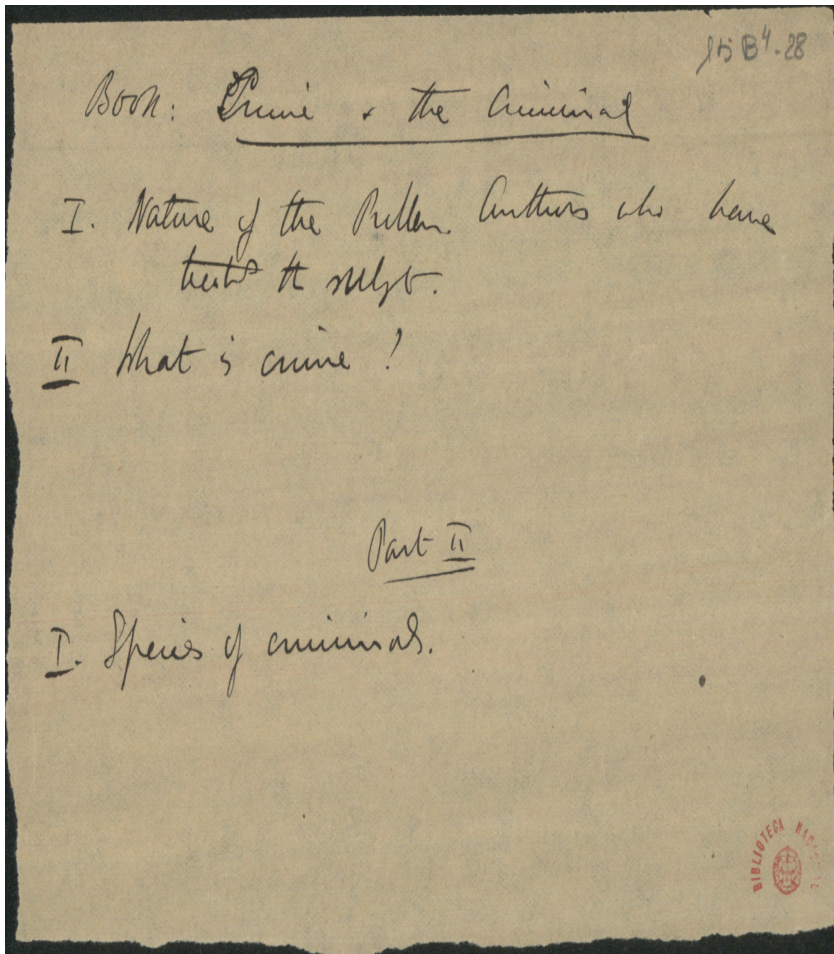 15 B⁴-28
Book: Crime & the Criminal
I. Nature of the Problem. Authors who have
treated the subject.
II What is crime?
Part II
I. Species of criminals.
BIBLIOTECA NACIONAL